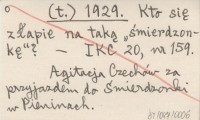 (t.) 1929. Kto się
złapie na taką „śmierdzon-
kę"? — IKC 20, nr 159.
Agitacja Czechów za
przyjazdem do Śmierdzonki
w Pieninach.